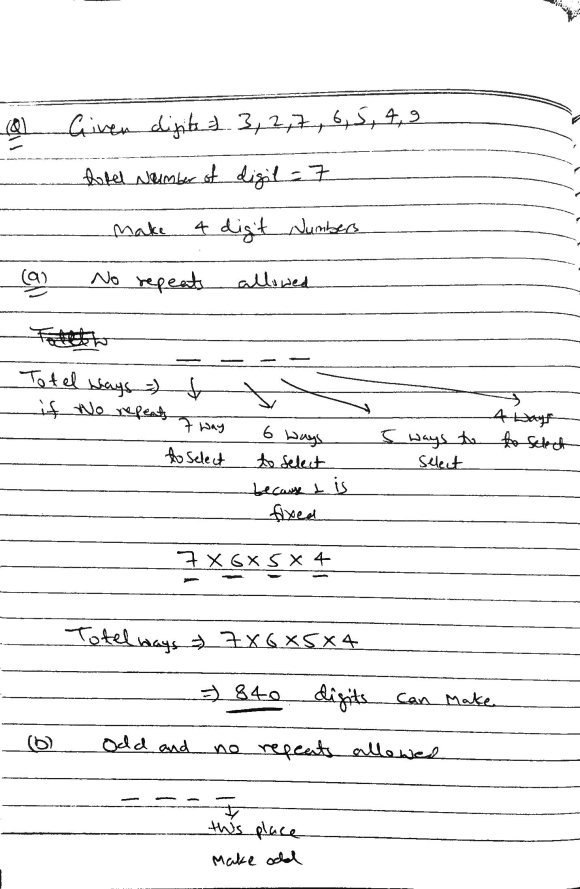 (Q) Given digits ⇒ 3, 2, 7, 6, 5, 4, 9
total Number of digit = 7
Make 4 digit Numbers
(a) No repeats allowed
Total w
Total ways ⇒
if No repeats
7 way
to select
6 ways
to select
because 1 is
fixed
5 ways to
select
4 ways
to select
7 × 6 × 5 × 4
Total ways ⇒ 7×6×5×4
⇒ 840 digits can make
(b) Odd and no repeats allowed
this place
Make odd